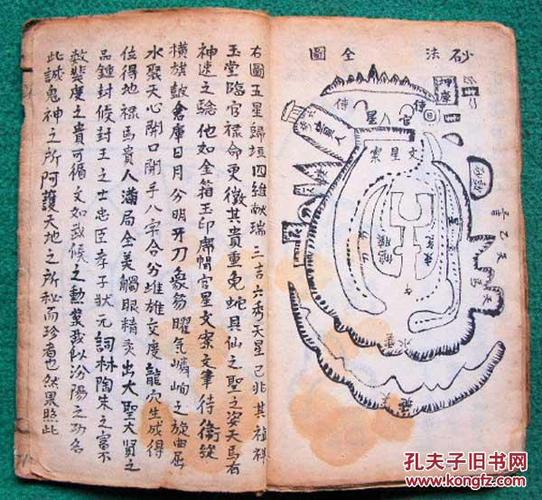 砂法全圖
官星
侍
侍
文星案
右圖五星歸垣四維献瑞三吉六秀天星已非其祖科
玉堂臨官祿命更徵其貴重兔蛇具仙之聖之姿天馬有
神速之驗他如金箱玉印席帽官星文案文筆侍衛旋
橫旗皷倉庫日月分明牙刀象笏曜气嶙峋之旋曲居
水聚天心開口開手八字合分堆雄交度龍穴生成得
位得地禄馬貴人滿局全美觸眼精奕出大聖大賢之
品鍾封候封王之士忠臣孝子狀元詞林陶朱之富不
數裴度之貴可循文如武候之勳業我似汾陽之功名
此誠鬼神之所阿護天地之所秘而珍者也然果照此
孔夫子旧书网
www.kongfz.com